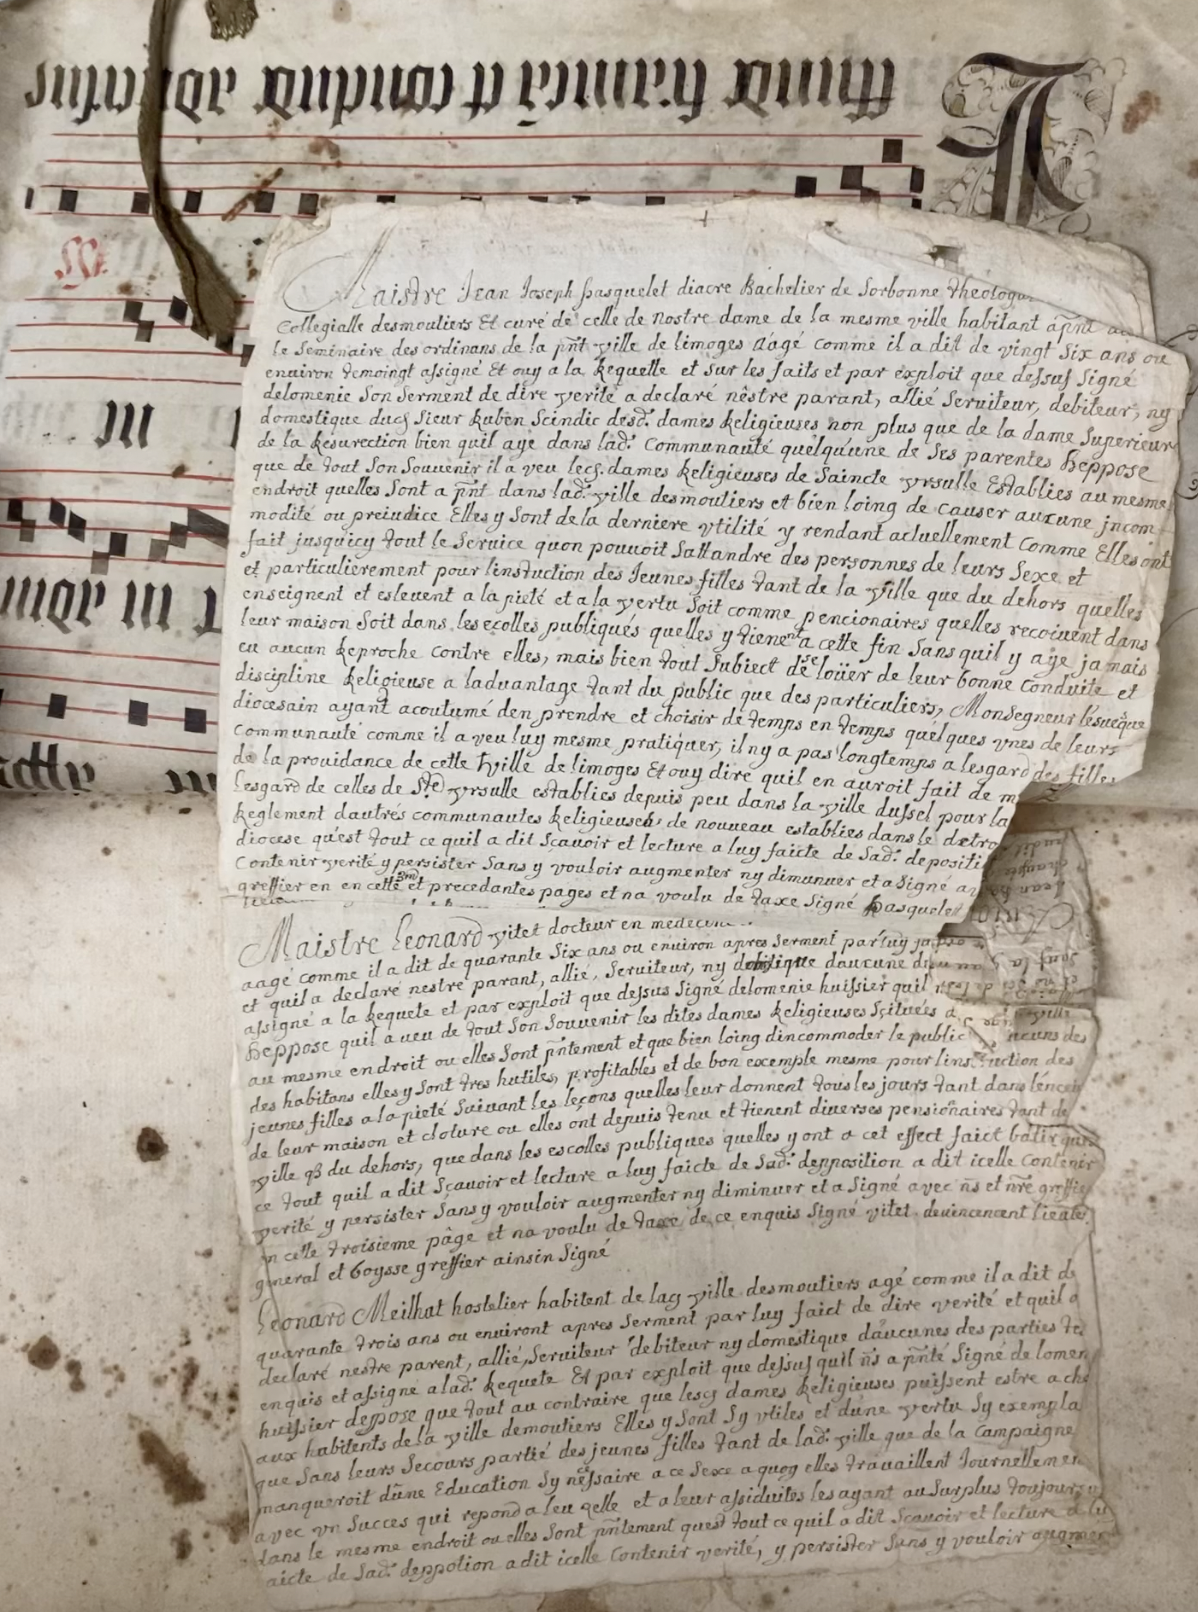 Maistre Jean Joseph pasquelet diacre Bachelier de Sorbonne theologa
Collegialle desmoutiers Et curé de celle de nostre dame de la mesme ville habitant apñt
le Seminaire des ordinans de la pñt ville de limoges Aagé comme il a dit de vingt Six ans ou
environ temoingt assigné Et ouy a la Requette et sur les faits et par exploit que dessus Signé
delomenie Son Serment de dire verité a declaré nêstre parant, allié Serviteur, debiteur, ny
domestique dud Sieur Ruben Scindic desd. dames Religieuses non plus que de la dame Superieur
de la Resurection bien quil aye dans lad. Communauté quelqu'une de Ses parentes Deppose
que de tout Son Souvenir il a veu lesd. dames Religieuses de Saincte yrsulle Establies au mesme
endroit quelles Sont a pñt dans lad. ville desmoutiers et bien loing de causer aucune jncom
modité ou preiudice Elles y Sont de la derniere vtilité y rendant actuellement Comme Elles ont
fait jusquicy tout le Service quon pouvoit Sattandre des personnes de leurs Sexe et
et particulierement pour linstuction des Jeunes filles tant de la ville que du dehors quelles
enseignent et eslevent a la pieté et a la vertu Soit comme pencionaires quelles recoivent dans
leur maison Soit dans les ecolles publiques quelles y tienent a cette fin Sans quil y aye jamais
eu aucun Reproche contre elles, mais bien tout Subiect de se loüer de leur bonne Conduite et
discipline Religieuse a ladvantage tant du public que des particuliers, Monsegneur lesveque
diocesain ayant acoutumé den prendre et choisir de temps en temps quelques vnes de leurs
Communauté comme il a veu luy mesme pratiquer, il ny a pas longtemps a lesgard des filles
de la providance de cette ville de limoges Et ouy dire quil en auroit fait de m
Lesgard de celles de Ste yrsulle establies depuis peu dans la ville dussel pour la
Reglement dautres communautes Religieuses de nouveau establies dans le detro
diocese qu'est tout ce quil a dit Scavoir et lecture a luy faicte de Sad. depositi
Contenir verité y persister Sans y vouloir augmenter ny dimunuer et a Signé av
greffier en en cette 3me et precedantes pages et na voulu de taxe Signé Pasquelet
Maistre Leonard vitet docteur en medecine
aagé comme il a dit de quarante Six ans ou environ apres Serment par luy
et quil a declaré nestre parant, allié, Serviteur, ny domestique daucune d
assigné a la Requete et par exploit que dessus Signé delomenie huissier quil
Deppose quil a veu de tout Son Souvenir les dites dames Religieuses Scituées d ville
au mesme endroit ou elles Sont pñtement et que bien loing dincommoder le public des
des habitans elles y Sont tres hutiles, profitables et de bon excemple mesme pour linstruction des
jeunes filles a la pieté Suivant les leçons quelles leur donnent tous les jours tant dans lencein
de leur maison et cloture ou elles ont depuis tenu et tienent diverses pensionaires tant de
ville q3 du dehors, que dans les escolles publiques quelles y ont a cet effect faict bâtir
ce tout quil a dit Scavoir et lecture a luy faicte de Sad. depposition a dit icelle Contenir
verité y persister Sans y vouloir augmenter ny diminuer et a Signé avec ñs et nre greffie
en cette troisieme pâge et na voulu de taxe de ce enquis Signé vitet. devincencent lieute
general et Boysse greffier ainsin Signé
Leonard Meilhat hostelier habitent de lad ville desmoutiers agé comme il a dit d
quarante trois ans ou environt apres Serment par luy faict de dire verité et quil a
declaré nestre parent, allié, Serviteur debiteur ny domestique daucunes des parties
enquis et assigne a lad. Requete Et par exploit que dessus quil ñs a pñté Signé de lomen
huissier deppose que tout au contraire que lesd dames Religieuses puissent estre a cha
aux habitents de la ville demoutiers Elles y Sont Sy vtiles et dune vertu Sy exempla
que Sans leurs Secours partié des jeunes filles tant de lad. ville que de la Campaigne
manqueroit dune Education Sy nessaire a ce Sexe a quoy elles travaillent Journellemen
avec vn Succes qui repond a leu zelle et a leur assiduites les ayant au Surplus toujours
dans le mesme endroit ou elles Sont pñtement quest tout ce quil a dit Scavoir et lecture a lu
aicte de Sad. deppotion a dit icelle Contenir verité, y persister Sans y vouloir augmen